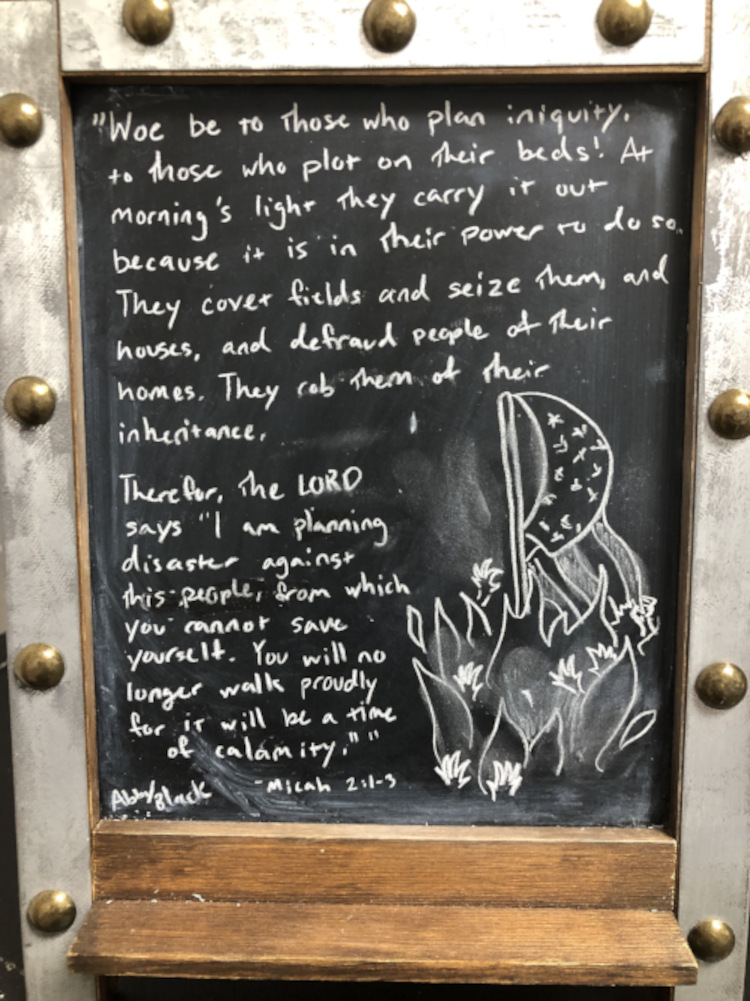 "Woe be to those who plan iniquity,
to those who plot on their beds! At
morning's light they carry it out
because it is in their power to do so.
They covet fields and seize them, and
houses, and defraud people of their
homes. They rob them of their
inheritance.
Therefor, the LORD
says "I am planning
disaster against
this people, from which
you cannot save
yourself. You will no
longer walk proudly
for it will be a time
of calamity." "
-Micah 2:1-3